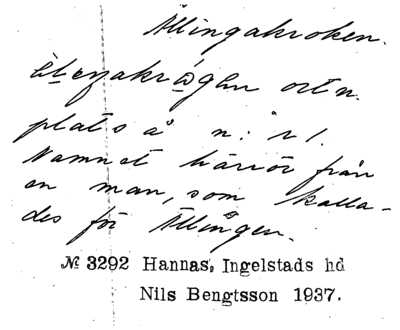 Ällingakroken.
ortn.
plats å n:r 1.
Namnet härrör från
en man, som kalla-
des för Ällingen.
№ 3292 Hannas, Ingelstads hd
Nils Bengtsson 1937.